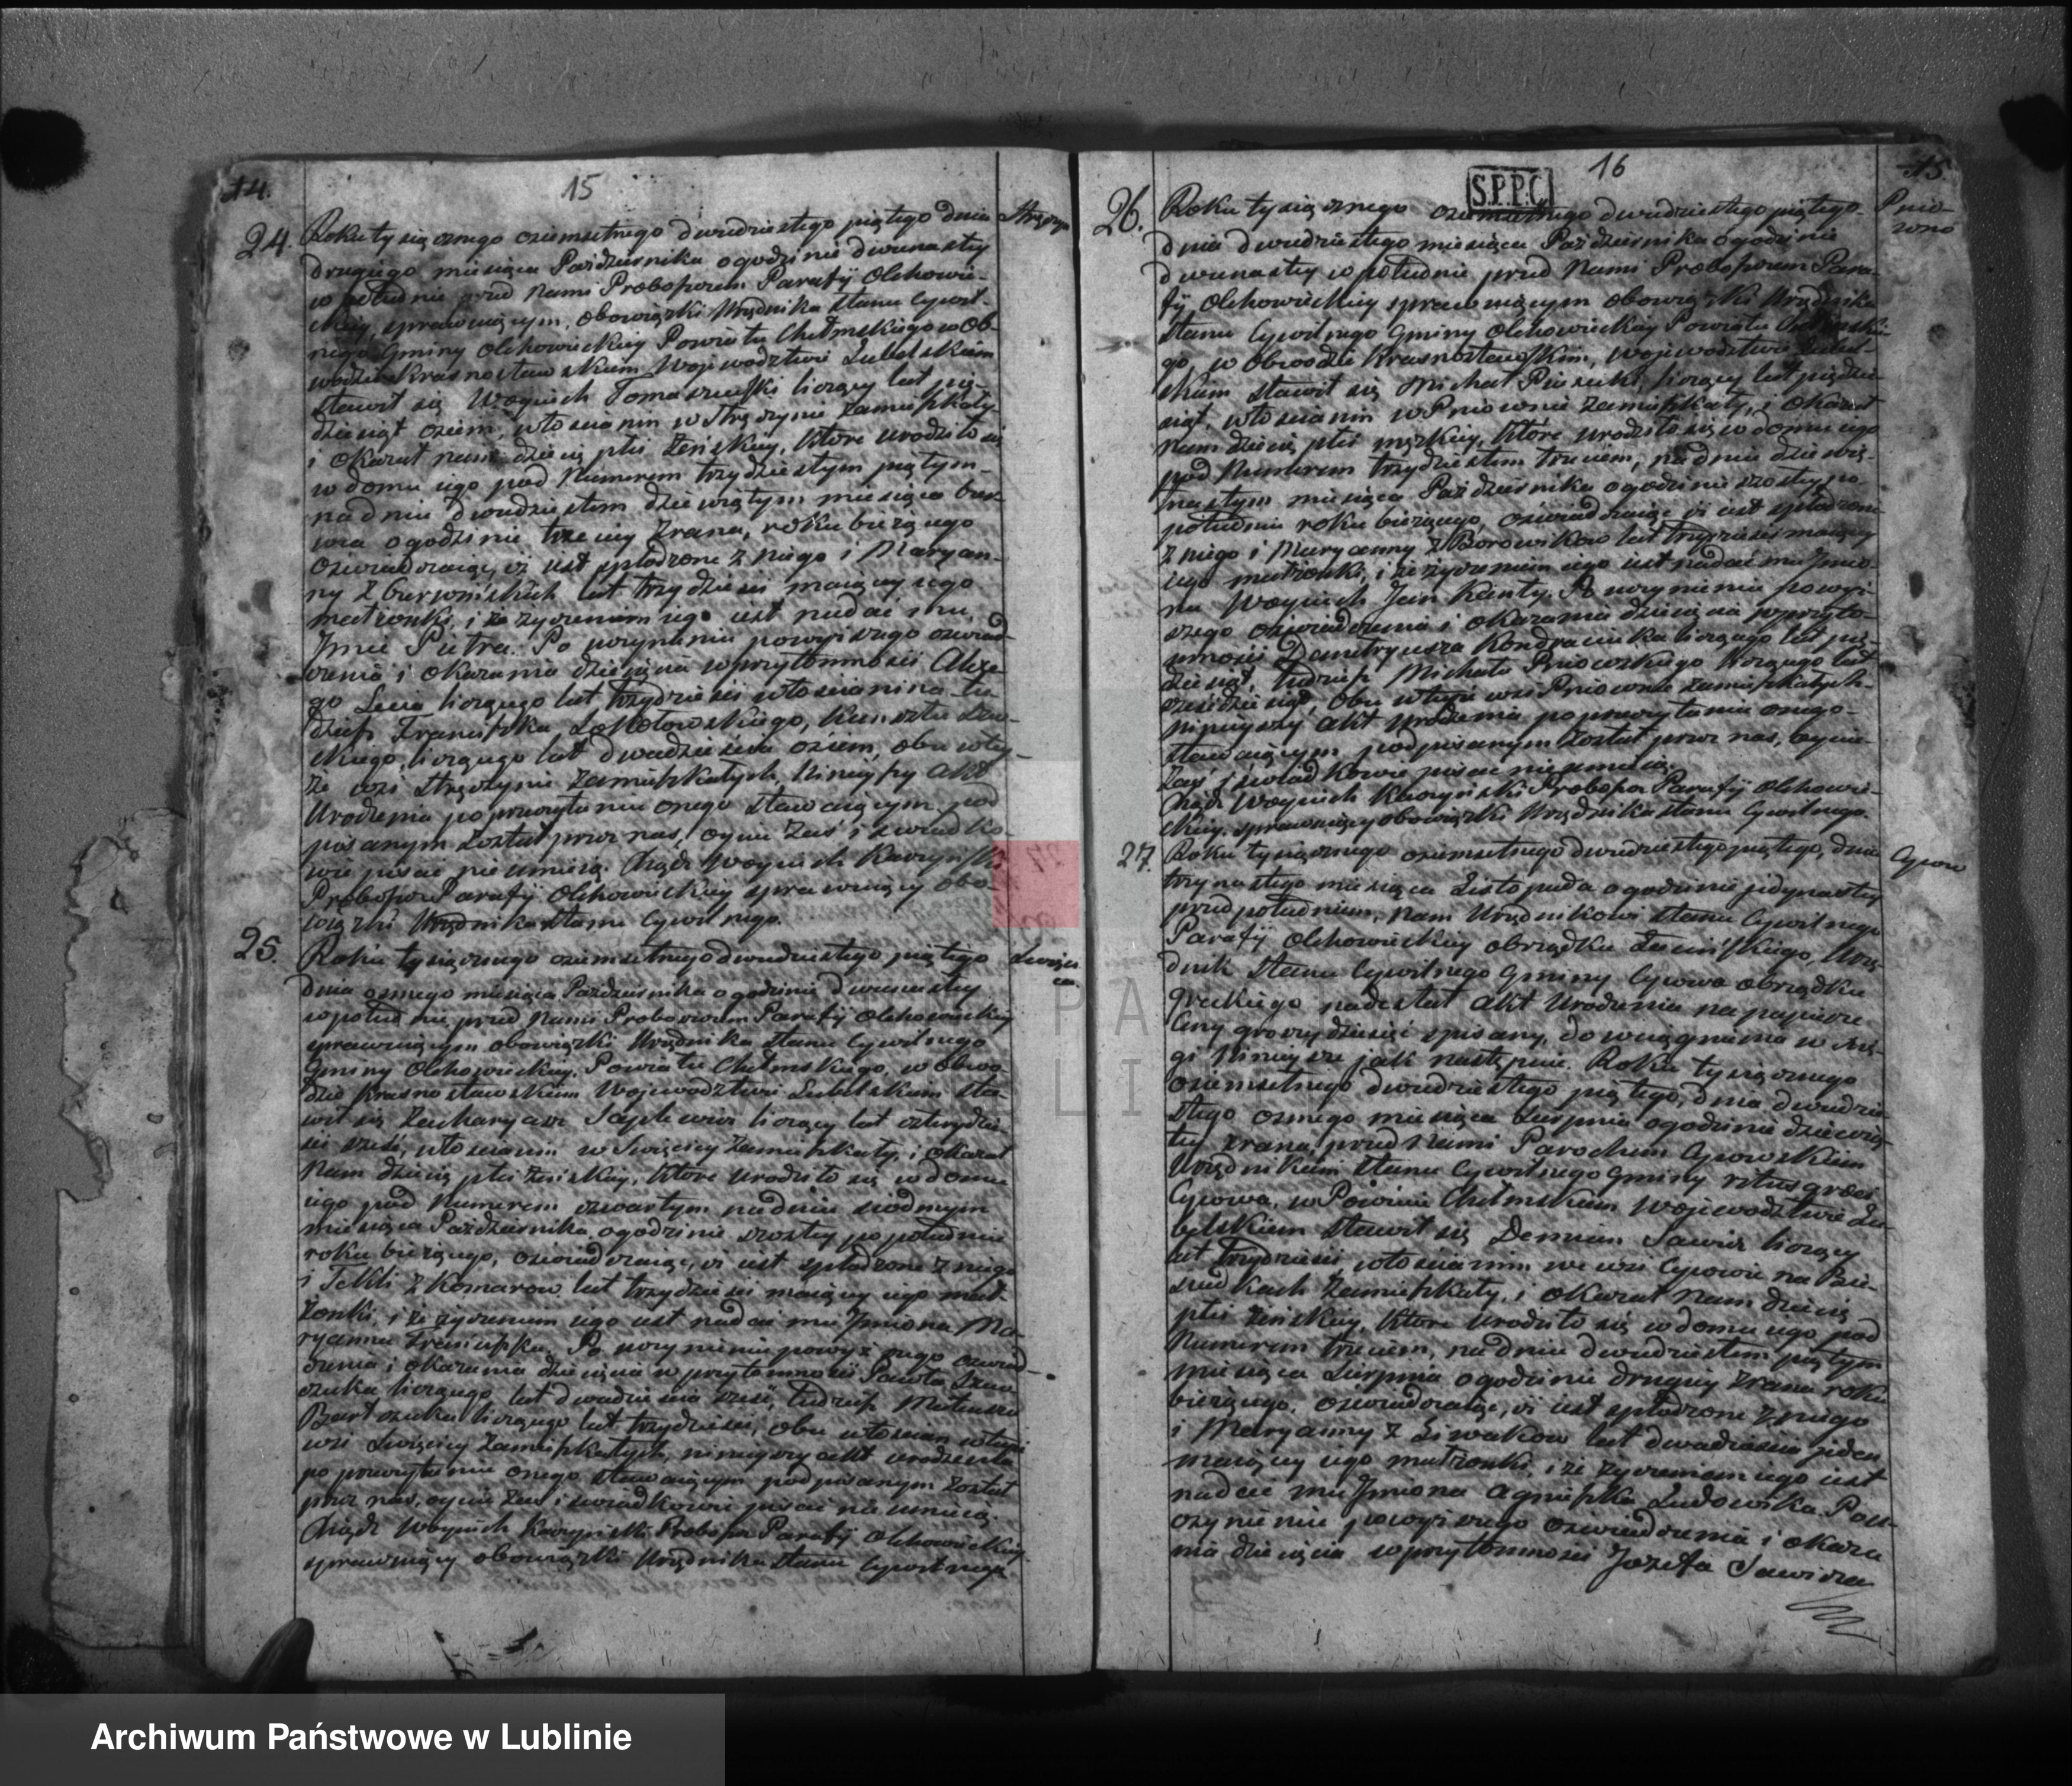 14.
15
24.
Roku tysiącznego ośmsetnego dwudziestego piątego dnia
drugiego miesiąca Października o godzinie dwunastey
w południe przed Nami Proboszczem Parafij Olchowie-
ckiey, sprawuiącym, obowiązki Urzędnika stanu Cywil-
nego Gminy Olchowieckiey Powiatu Chełmskiego w Ob-
wodzie Krasnostawskiem Województwie Lubelskiem
stawił się Woyciech Tomaszewski liczący lat pię-
dziesiąt osiem, włościanin w Strzyżynie zamieszkały
i okazał nam dziecię płci Żeńskiey, które urodziło się
w domu iego pod Numerem trzydziestym piątym
na dniu dwudziestem dziewiątym miesiąca
o godzinie trzeciey zrana, roku bieżącego
oświadczaiąc, iż iest spłodzone z niego i Maryan-
ny z lat trzydzieści maiącey iego
małżonki, i że życzeniem iego iest nadać mu
Jmie Po uczynieniu powyższego oświad-
czenia i okazaniu dziecięcia w przytomności
go liczącego lat trzydzieści włościanina tu
dzież Franciszka
liczącego lat dwadzieścia osiem, obu w tey
że wsi zamieszkałych, Ninieyszy Akt
Urodzenia po przeczytaniu onego stawaiącym pod
pisanym został przez nas, oyciec zaś i świadko-
wie pisać nie umieią. Xiądz Woyciech Kaczyński
Proboszcz Parafij Olchowieckiey sprawuiący obo-
wiązki Urzędnika stanu Cywilnego.
25.
Roku tysiącznego ośmsetnego dwudziestego piątego
dnia osmego miesiąca Października o godzinie dwunastey
w południe przed Nami Proboszczem Parafij Olchowieckiey
sprawuiącym obowiązki Urzędnika stanu Cywilnego
Gminy Olchowieckiey, Powiatu Chełmskiego, w Obwo-
dzie Krasnostawskiem Województwie Lubelskiem sta-
wił się Zacharyasz liczący lat czterdzie-
ści sześć, włościanin w Swięcicy zamieszkały, i okazał
Nam dziecię płci żeńskiey, które urodziło się w domu
iego pod Numerem czwartym na dniu siodmym
miesiąca Października o godzinie szostey po południu
roku bieżącego, oświadczaiąc, iż iest spłodzone z niego
i Tekli z Komarow lat trzydzieści maiącey iego mał-
żonki, i że życzeniem iego iest nadać mu Jmiona Ma-
ryanna Franciszka. Po uczynieniu powyższego oświad-
czenia i okazania dziecięcia w przytomności Pawła
liczącego lat dwadzieścia sześć, tudzież Mateusza
Bartoszuka liczącego lat trzydzieści, obu włościan w teyże
wsi Swięcicy zamieszkałych, ninieyszy akt urodzenia
po przeczytaniu onego stawaiącym podpisanym został
przez nas, oyciec zaś i swiadkowie pisać nie umieią.
Xiądz Woyciech Kaczyński Proboszcz Parafij Olchowieckiey
sprawuiący obowiązki Urzędnika stanu Cywilnego
16
S.P.P.C
15
26.
Pnio-
wno
Roku tysiącznego ośmsetnego dwudziestego piątego
dnia dwudziestego miesiąca Października o godzinie
dwunastey w południe przed Nami Proboszczem Para-
fij Olchowieckiey sprawuiącym obowiązki Urzędnika
stanu Cywilnego Gminy Olchowieckiey Powiatu Chełmskie
go, w Obwodzie Krasnostawskim, Województwie Lubel-
skiem stawił się Michał liczący lat pięćdzie-
siąt, włościanin w Pniownie zamieszkały, i okazał
Nam dziecię płci męzkiey, które urodziło się w domu iego
pod Numerem trzydziestem trzeciem, na dniu dziewię-
tnastym miesiąca Października o godzinie szostey po
południu roku bieżącego, oświadczaiąc iż iest spłodzone
z niego i Maryanny z Borowikow lat trzydzieści maiącey
iego małżonki, i że życzeniem iego iest nadać mu Jmio-
na Woyciech Jan Kanty. Po uczynieniu powyż-
szego oświadczenia i okazania dziecięcia w przyto-
mności Dymitryusza Kondraciuka liczącego lat pię-
dziesiąt, tudzież Michała Pniowskiego liczącego lat
obu w teyże wsi Pniownie zamieszkałych
ninieyszy Akt Urodzenia po przeczytaniu onego
stawaiącym podpisanym został przez nas, oyciec
zaś i świadkowie pisać nie umieią.
Xiądz Woyciech Kaczyński Proboszcz Parafij Olchowie-
ckiey sprawuiący obowiązki Urzędnika stanu Cywilnego.
27.
Cycow
Roku tysiącznego ośmsetnego dwudziestego piątego, dnia
trzynastego miesiąca Listopada o godzinie jedynastey
przed południem, Nam Urzędnikowi stanu Cywilnego
Parafij Olchowieckiey obrządku Łacińskiego, Urzę-
dnik stanu Cywilnego Gminy Cycowa obrządku
greckiego nadesłał Akt Urodzenia na papierze
ceny groszy dziesięć spisany, do wciągnienia w Xię-
gi Ninieysze jak następuie. Roku tysiącznego
ośmsetnego dwudziestego piątego, dnia dwudzie-
stego osmego miesiąca Sierpnia o godzinie dziewią-
tey zrana, przed Nami Parochem Cycowskiem
Urzędnikiem stanu Cywilnego Gminy ritus graeci
Cycowa, w Powiecie Chełmskiem Województwie Lu-
belskiem stawił się Demian Sawicz liczący
lat trzydzieści włościanin we wsi Cycowie na
zamieszkały, i okazał Nam dziecię
płci żeńskiey, które urodziło się w domu iego pod
Numerem trzeciem, na dniu dwudziestem piątym
miesiąca Sierpnia o godzinie drugiey zrana roku
bieżącego, oświadczaiąc, iż iest spłodzone z niego
i Maryanny z Siwakow lat dwadzieścia jeden
maiącey iego małżonki, i że życzeniem iego iest
nadać mu Jmiona Agnieszka Ludowika. Po u-
czynieniu powyższego oświadczenia i okaza
nia dziecięcia w przytomności Jozefa Sawicza
Archiwum Państwowe w Lublinie